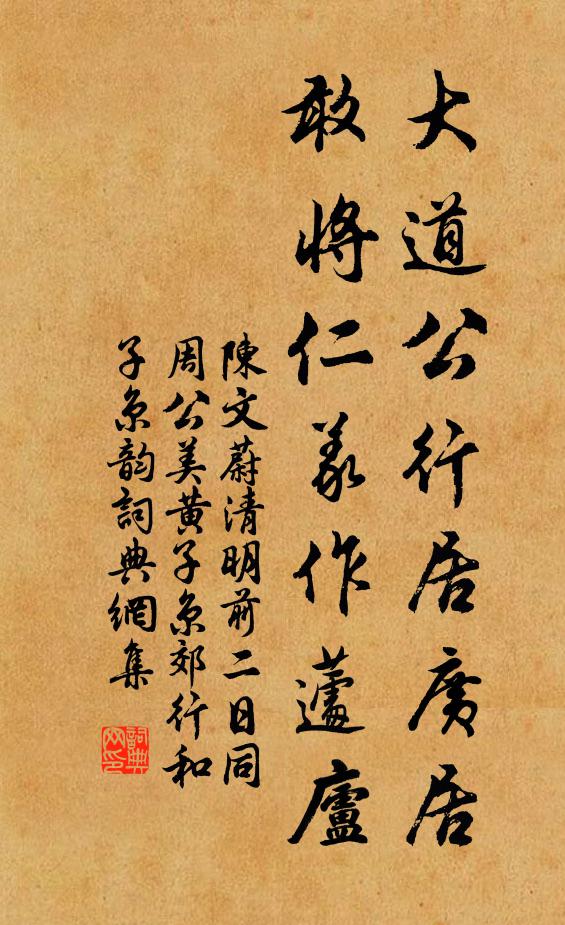 大道公行居廣居
敢將仁義作蘧廬
陳文蔚清明前二日同
周公美黃子京郊行和
子京韵詞典網集
詞典网印